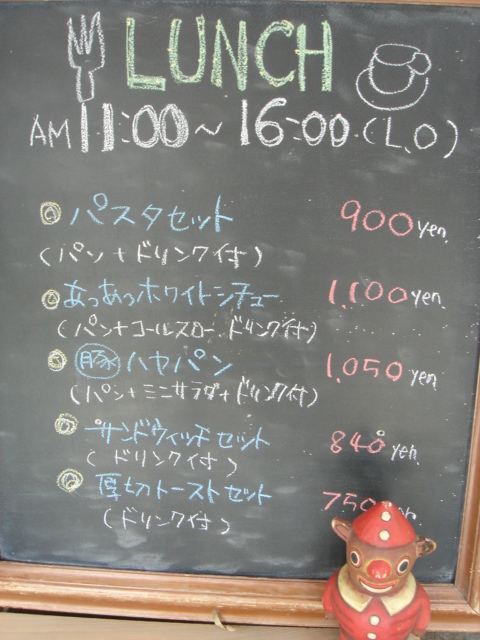 LUNCH
AM 11:00~16:00(L.O)
パスタセット 900 yen.
(パン+ドリンク付)
あつあつホワイトシチュー 1,100 yen.
(パン+コールスロー.ドリンク付)
豚ハヤパン 1,050 yen
(パン+ミニサラダ+ドリンク付)
サンドウィッチセット 840 yen.
(ドリンク付)
厚切トーストセット 750
(ドリンク付)